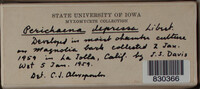 STATE UNIVERSITY OF IOWA
MYXOMYCETE COLLECTION
Perichaena depressa Libert
Developed in moist chamber culture
on Magnolia bark collected 2 Jan.
1959 in La Jolla, Calif. by J. S. Davis
Wet 3 Jan. 1959.
Det. C. J. Alexopoulos
830366